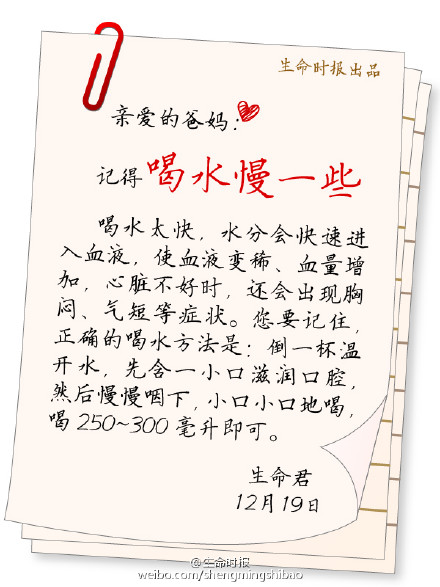 生命时报出品
亲爱的爸妈：
记得喝水慢一些
喝水太快，水分会快速进
入血液，使血液变稀、血量增
加，心脏不好时，还会出现胸
闷、气短等症状。您要记住，
正确的喝水方法是：倒一杯温
开水，先含一小口滋润口腔，
然后慢慢咽下，小口小口地喝，
喝250~300毫升即可。
生命君
12月19日
@生命时报
weibo.com/shengmingshibao